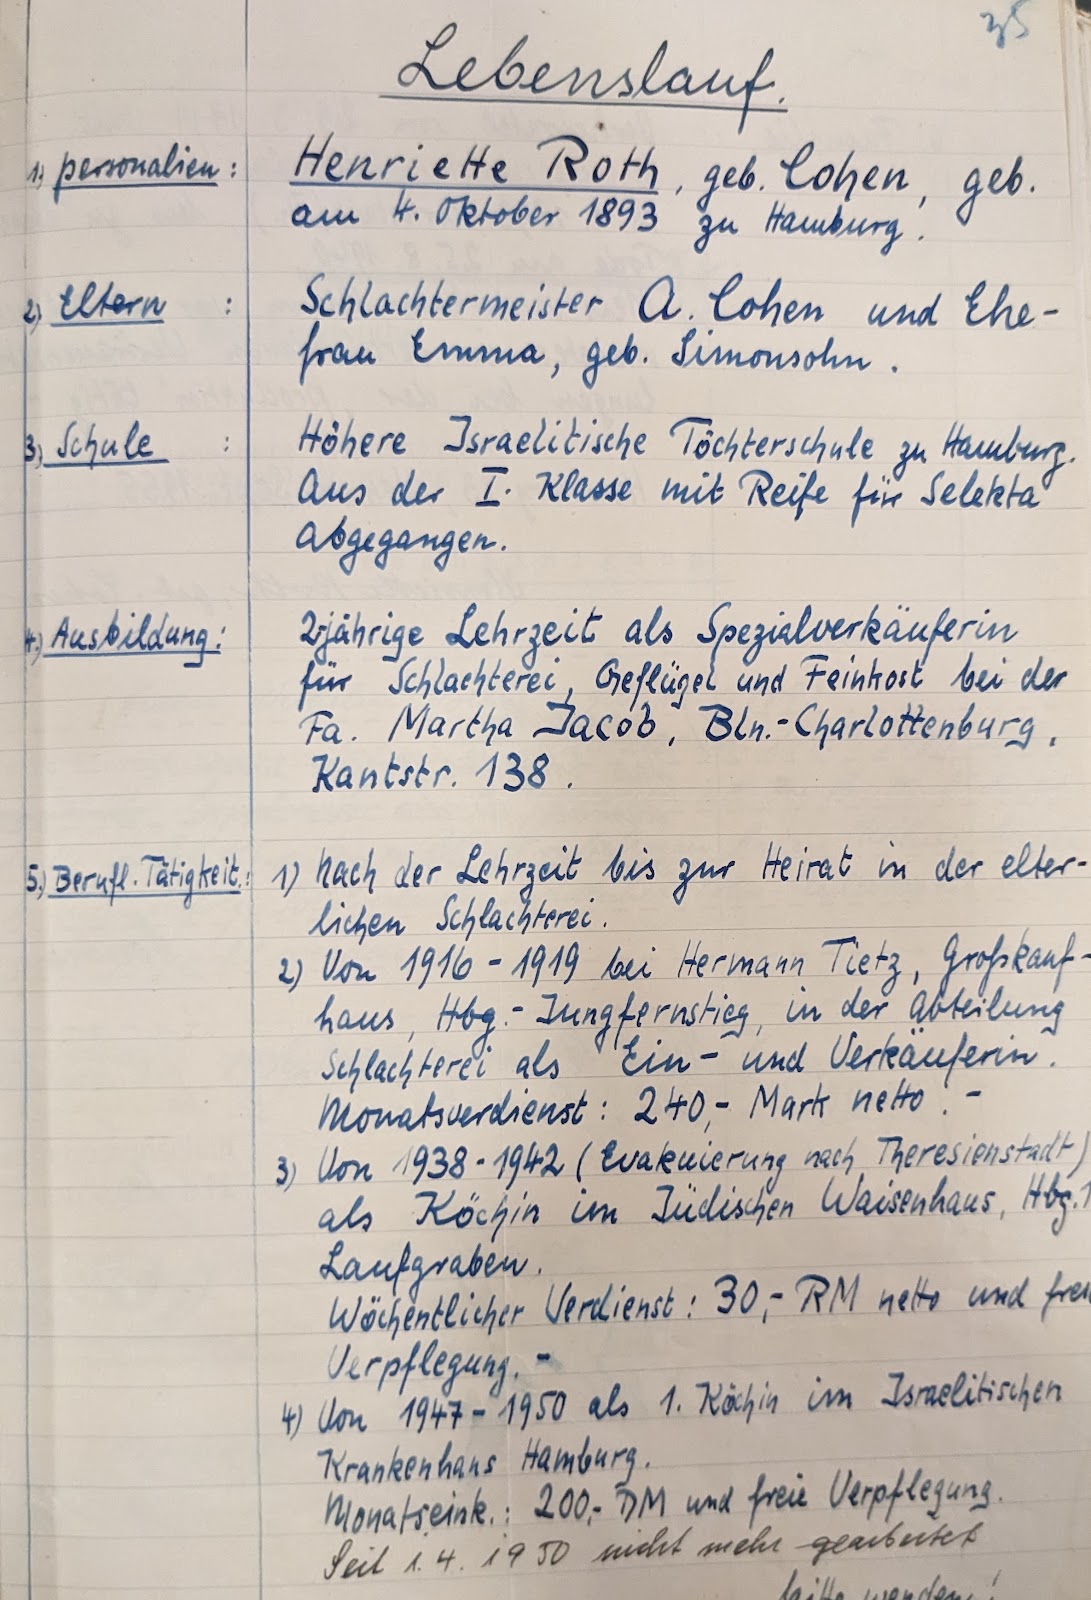 35
Lebenslauf.
1) Personalien: Henriette Roth, geb. Cohen, geb.
am 4. Oktober 1893 zu Hamburg.
2) Eltern : Schlachtermeister A. Cohen und Ehe-
frau Emma, geb. Simonsohn.
3) Schule : Höhere Israelitische Töchterschule zu Hamburg.
Aus der I. Klasse mit Reife für Selekta
abgegangen.
4.) Ausbildung: 2jährige Lehrzeit als Spezialverkäuferin
für Schlachterei, Geflügel und Feinkost bei der
Fa. Martha Jacob, Bln.-Charlottenburg,
Kantstr. 138.
5.) Berufl. Tätigkeit.: 1) Nach der Lehrzeit bis zur Heirat in der elter-
lichen Schlachterei.
2) Von 1916 - 1919 bei Hermann Tietz, Großkauf-
haus, Hbg.-Jungfernstieg, in der Abteilung
Schlachterei als Ein- und Verkäuferin.
Monatsverdienst: 240,- Mark netto. -
3) Von 1938 - 1942 (Evakuierung nach Theresienstadt)
als Köchin im Jüdischen Waisenhaus, Hbg.1
Laufgraben.
Wöchentlicher Verdienst: 30,- RM netto und
Verpflegung. -
4) Von 1947 - 1950 als 1. Köchin im Israelitischen
Krankenhaus Hamburg.
Monatseink.: 200,- DM und freie Verpflegung.
Seit 1. 4. 1950 nicht mehr gearbeitet
bitte wenden!